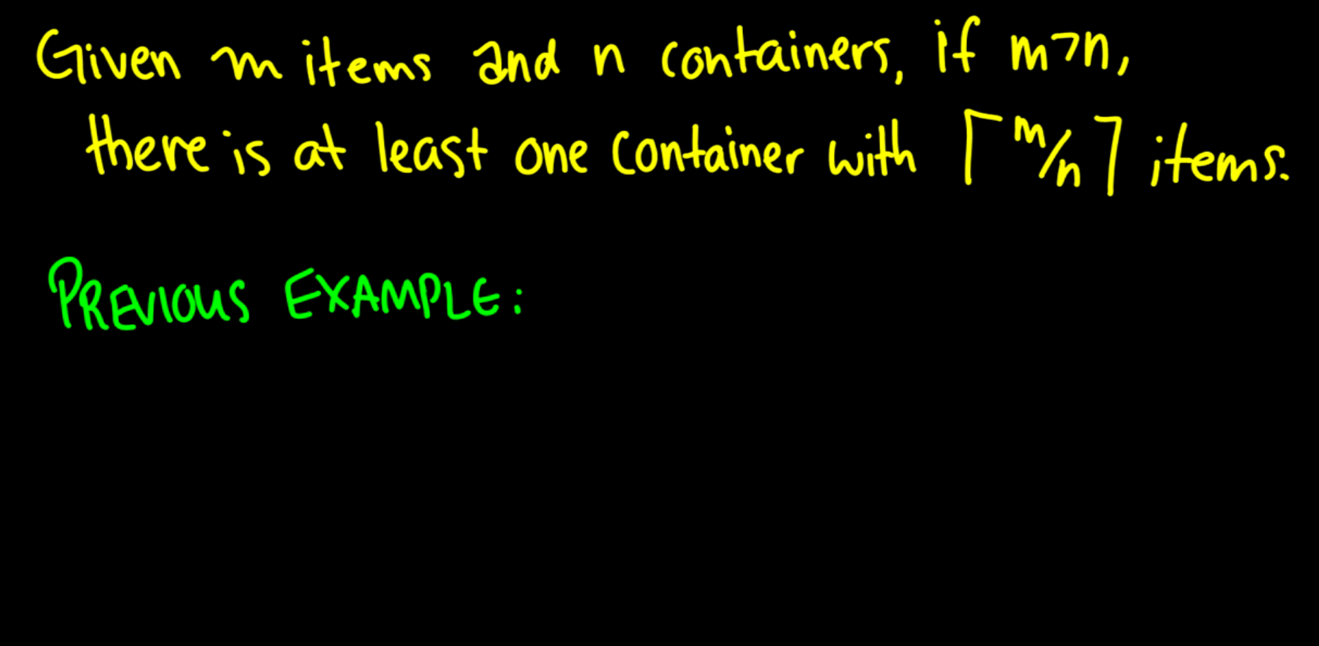 Given m items and n containers, if m>n,
there is at least one container with ⌈m/n⌉ items.
PREVIOUS EXAMPLE: